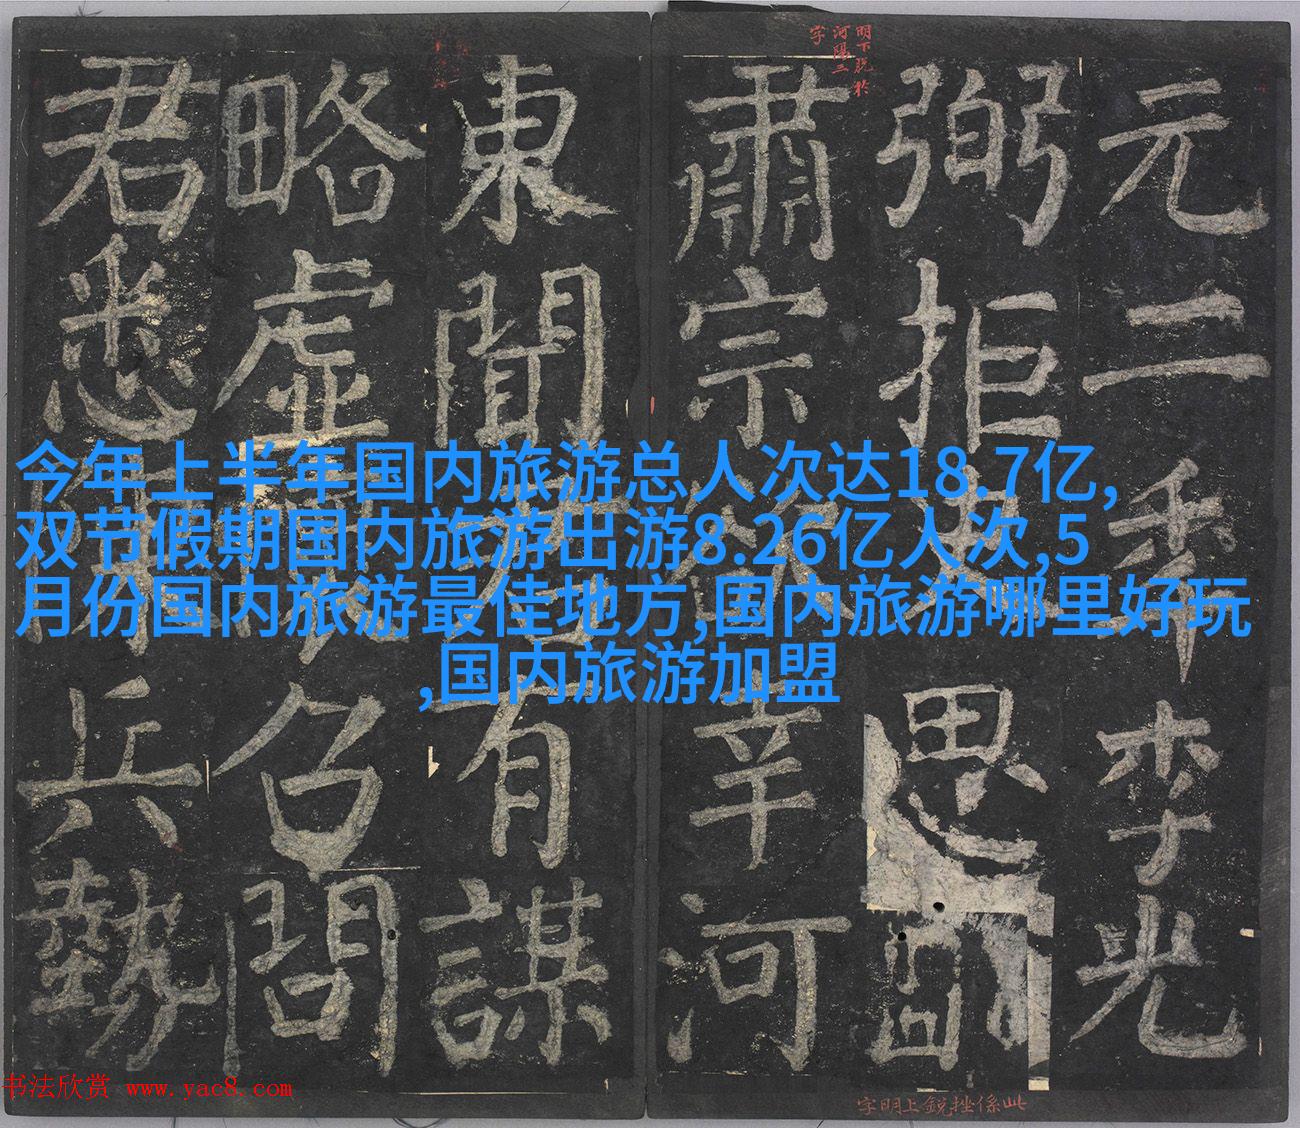 明下脫於
河陽三
字
元二秊李光
弼拒史思明
肅宗幸河
東聞君有謀
略虛召問
君悉陳兵勢
今年上半年国内旅游总人次达18.7亿,
双节假期国内旅游出游8.26亿人次,5
月份国内旅游最佳地方,国内旅游哪里好玩
,国内旅游加盟
此係挫銳上明字
书法欣赏 www.yac8.com